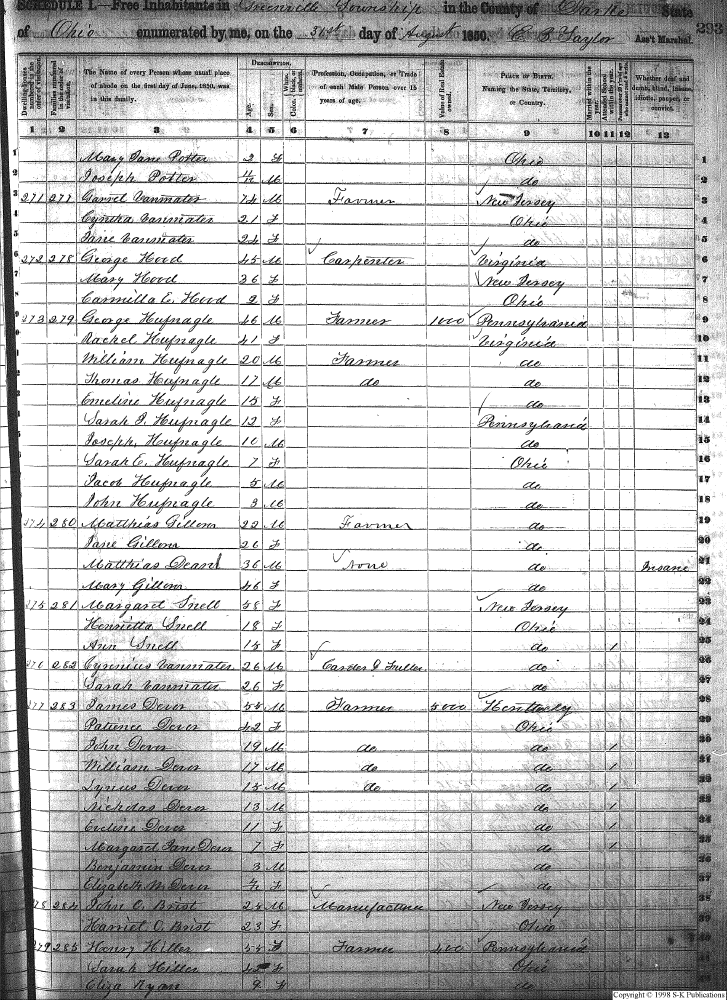 SCHEDULE I.—Free Inhabitants in Greenville Township in the County of Darke State
of Ohio enumerated by me, on the 31st day of August 1850. C. B. Taylor Ass't Marshal. 293
Dwelling-houses numbered in the order of visitation.
Families numbered in the order of visitation.
The Name of every Person whose usual place of abode on the first day of June, 1850, was in this family.
DESCRIPTION.
Age.
Sex.
Color,
Profession, Occupation, or Trade of each Male Person over 15 years of age.
Value of Real Estate owned.
PLACE OF BIRTH. Naming the State, Territory, or Country.
Married within the year.
Attended School within the year.
Whether deaf and dumb, blind, insane, idiotic, pauper, or convict.
1 2 3 4 5 6 7 8 9 10 11 12 13
1 Mary Jane Potter 2 F Ohio 1
2 Joseph Potter /12 M do 2
3 271 277 Garret Vanmater 74 M Farmer New Jersey 3
4 Cyntha Vanmater 21 F Ohio 4
5 Jane Vanmater 24 F do 5
6 272 278 George Hood 45 M Carpenter Virginia 6
7 Mary Hood 36 F New Jersey 7
8 Carmilla C. Hood 2 F Ohio 8
9 273 279 George Hufnagle 46 M Farmer 1000 Pennsylvania 9
10 Rachel Hufnagle 41 F Virginia 10
11 William Hufnagle 20 M Farmer do 11
12 Thomas Hufnagle 17 M do do 12
13 Emeline Hufnagle 15 F do 13
14 Sarah J. Hufnagle 12 F Pennsylvania 14
15 Joseph Hufnagle 10 M do 15
16 Sarah E. Hufnagle 7 F Ohio 16
17 Jacob Hufnagle 5 M do 17
18 John Hufnagle 3 M do 18
19 274 280 Matthias Gillom 22 M Farmer do 19
20 Jane Gillom 26 F do 20
21 Matthias Dean 36 M None do Insane 21
22 Mary Gillom 46 F do 22
23 275 281 Margaret Snell 58 F New Jersey 23
24 Henrietta Snell 18 F Ohio 24
25 Ann Snell 15 F do 1 25
26 276 282 Cyrenius Vanmater 26 M Carder & Fuller do 26
27 Sarah Vanmater 26 F do 27
28 277 283 James Devor 54 M Farmer 5000 Kentucky 28
29 Patience Devor 42 F Ohio 29
30 John Devor 19 M do do 1 30
31 William Devor 17 M do do 1 31
32 Lynus Devor 15 M do do 1 32
33 Nicholas Devor 13 M do 1 33
34 Eveline Devor 11 F do 1 34
35 Margaret Jane Devor 7 F do 1 35
36 Benjamin Devor 3 M do 36
37 Elizabeth M. Devor F do 37
38 278 284 John O. Brist 24 M Manufacturer New Jersey 38
39 Harriet O. Brist 23 F Ohio 39
40 279 285 Henry Hiller 54 F Farmer 400 Pennsylvania 40
41 Sarah Hiller F Ohio 41
42 Eliza Ryan 9 F do 42
Copyright © 1998 S-K Publications